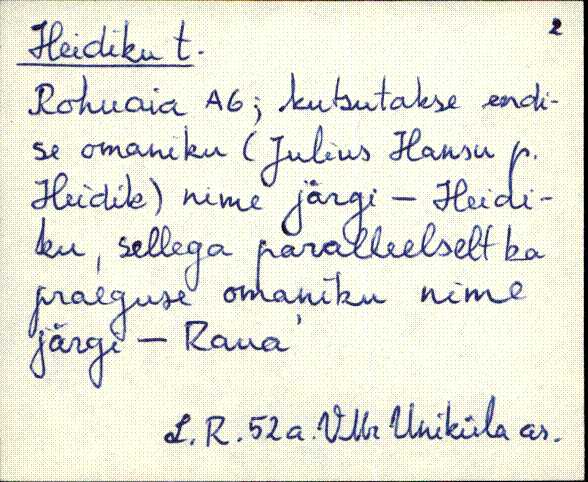 2
Heidiku t.
Rohuaia A6; kutsutakse endi-
se omaniku (Julius Hansu p.
Heidik) nime järgi – Heidi-
ku, sellega paralleelselt ka
praeguse omaniku nime
järgi – Raua'
L. R. 52 a. VMr Uniküla as.